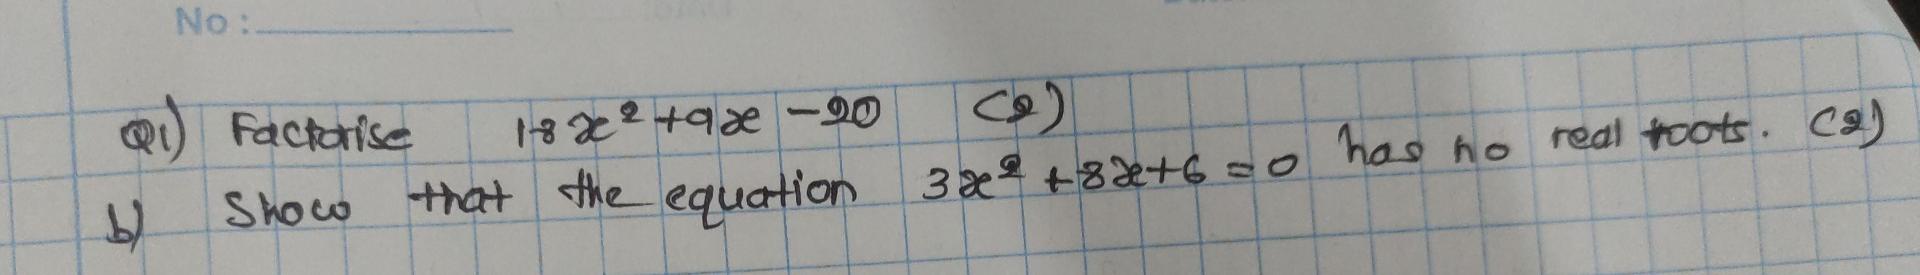 No:
Q1) Factorise 18x² + 9x - 20 (2)
b) Show that the equation 3x² + 8x + 6 = 0 has no real roots. (2)